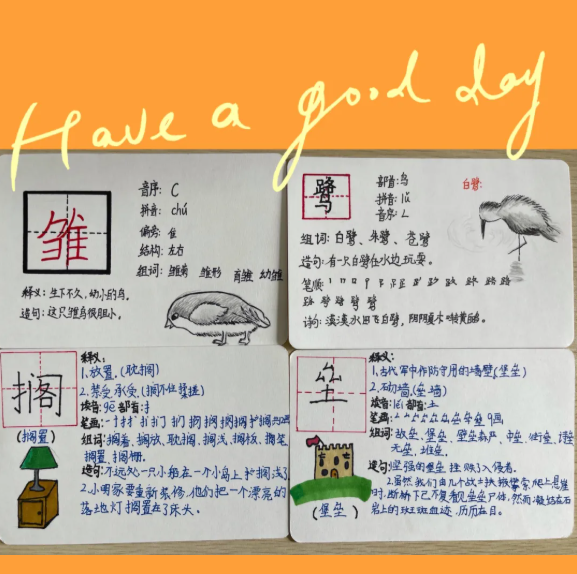 Have a good day
雏
音序: C
拼音: chú
偏旁: 隹
结构: 左右
组词: 雏菊 雏形 育雏 幼雏
释义: 生下不久,幼小的鸟。
造句: 这只雏鸟很胆小。
鹭
部首: 鸟
拼音: lù
音序: L
白鹭:
组词: 白鹭、朱鹭、苍鹭
造句: 有一只白鹭在水边玩耍。
笔顺:
诗句: 漠漠水田飞白鹭, 阴阴夏木啭黄鹂。
搁
(搁置)
释义:
1、放置。(耽搁)
2、禁受,承受。(搁不住揉搓)
读音: gē 部首: 扌
笔画:
组词: 搁着、搁放、耽搁、搁浅、搁板、搁笔
搁置、搁栅。
造句: 不远处一只小船在一个小岛上搁浅了
2、小明家要重新装修,他们把一个漂亮的
落地灯搁置在了床头。
垒
(堡垒)
释义:
1、古代军中作防守用的墙壁(堡垒)
2、砌墙(垒墙)
读音: lěi 部首: 土
笔画:
组词: 故垒、堡垒、壁垒森严、
造句: 坚强的堡垒挫败了入侵者。
2、虽然我们由几个战士扶搬攀索爬上悬崖
时,断桥下已不复看见垒垒尸体,然而凝结在石
岩上的斑斑血迹,历历在目。